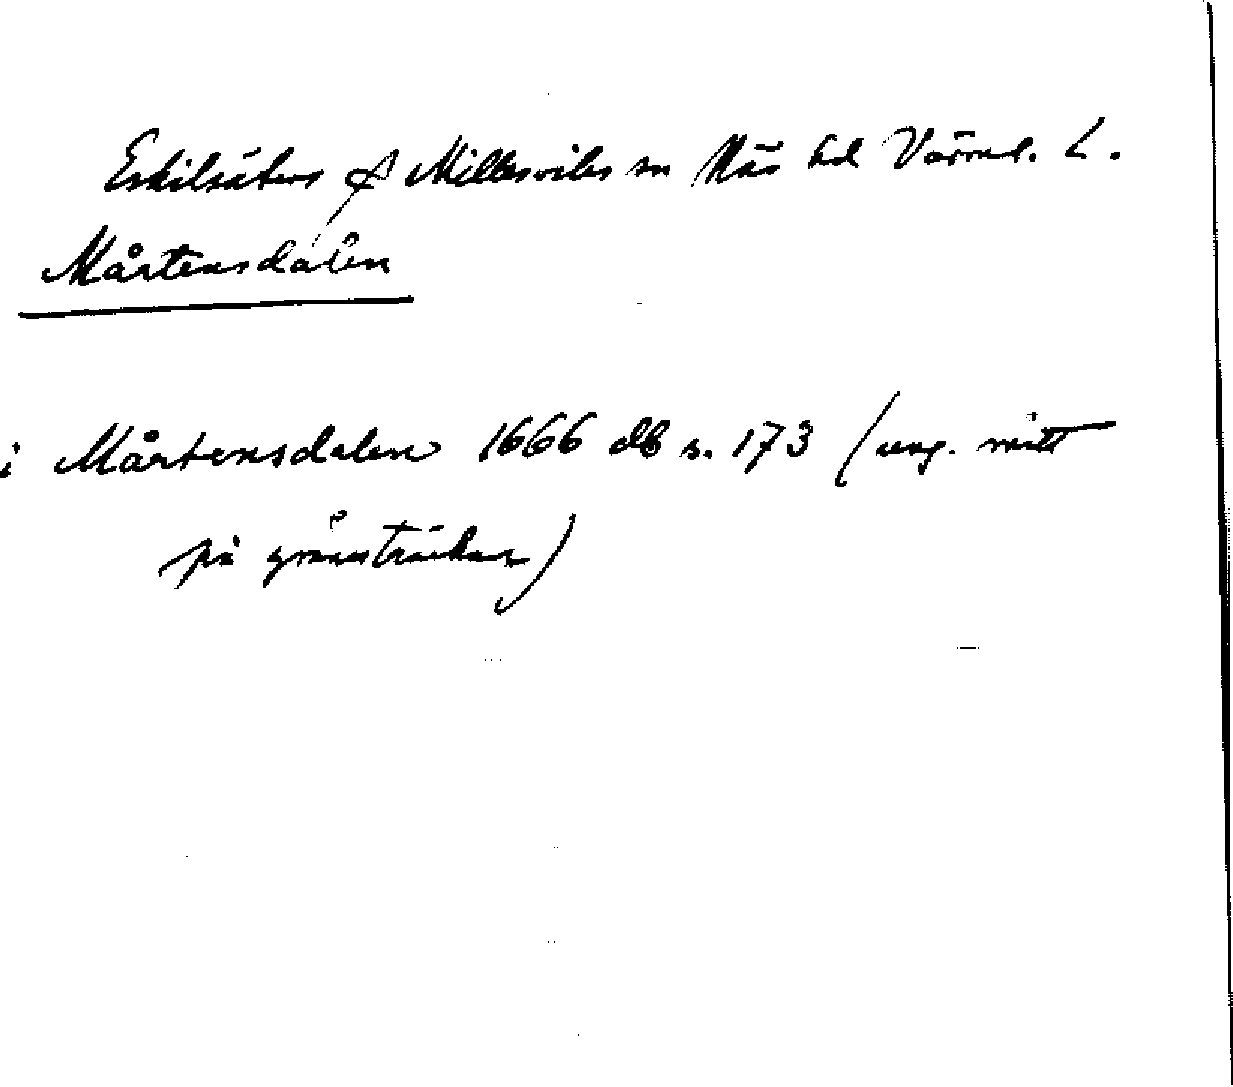 Eskilsäters & Millesviks sn Näs hd Värml. L.
Mårtensdalen
i Mårtensdalen 1666 db s. 173 (ung. mitt
på gränssträckan)